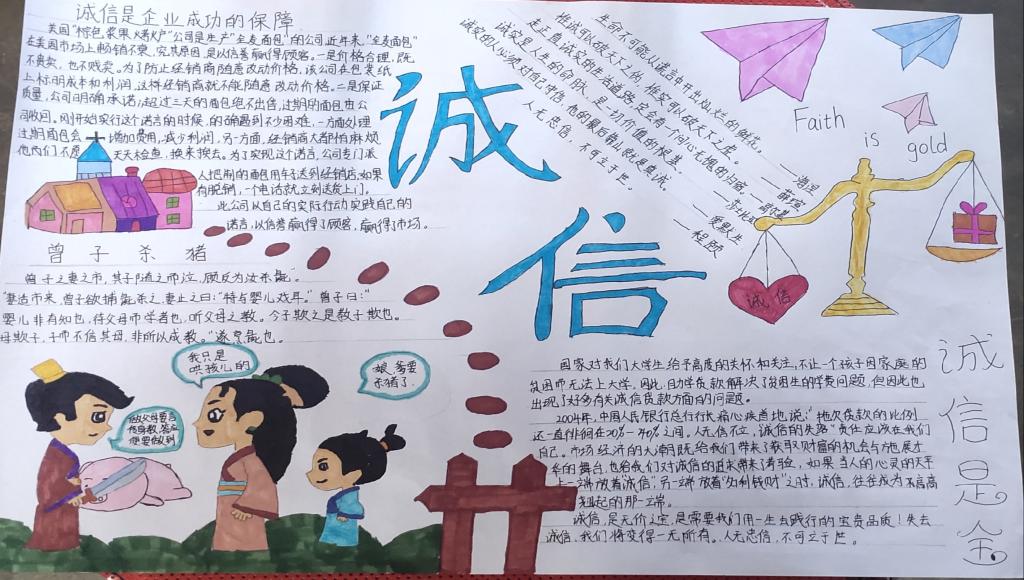 诚信是企业成功的保障
美国"棕色浆果烤炉"公司是生产"全麦面包"的公司,近年来,"全麦面包"
在美国市场上畅销不衰,究其原因是以信誉赢得顾客。一是价格合理,既
不贵卖,也不贱卖。为了防止经销商随意改动价格,该公司在包装纸
上标明成本和利润,这样经销商就不能随意改动价格。二是保证
质量,公司明确承诺,超过三天的面包绝不出售,过期的面包由公
司收回。刚开始实行这个诺言的时候,的确遇到不少困难,一方面处理
过期面包会增加费用,减少利润,另一方面,经销商大都怕麻烦
他们不愿天天检查,换来换去。为了实现这个诺言,公司专门派
人把刚的面包用车送到经销店,如果
有脱销,一个电话就立刻送货上门。
此公司以自己的实际行动实践自己的
诺言,以信誉赢得了顾客,赢得了市场。
曾子杀猪
曾子之妻之市,其子随之而泣,顾反为汝杀彘"。
妻适市来,曾子欲捕彘杀之,妻止之曰:"特与婴儿戏耳。"曾子曰:"
婴儿非有知也,待父母而学者也,听父母之教。今子欺之是教子欺也。
母欺子,子而不信其母,非所以成教。"遂烹彘也。
我只是
哄孩儿的
娘,爹要
杀猪了
做父母要言
传身教,答应
便要做到
诚信
生命不可能从谎言中开出灿烂的鲜花。
——海涅
惟诚可以破天下之伪,惟实可以破天下之虚。
——薛瑄
走正直诚实的生活道路,定会有一个问心无愧的归宿。
——高尔基
诚实是人生的命脉,是一切价值的根基。
诚实的人必须对自己守信,他的最后靠山就是真诚。
——爱默生
人无忠信,不可立于世。
——程颐
Faith is gold
诚信
诚信是金
国家对我们大学生给予高度的关怀和关注,不让一个孩子因家庭的
贫困而无法上大学。因此,助学贷款解决了贫困生的学费问题,但因此也
出现了好多有关诚信贷款方面的问题。
2004年,中国人民银行总行行长痛心疾首地说:"拖欠贷款的比例
还一直徘徊在20%-40%之间,人无信不立,诚信的失落"责任应该在我们
自己。市场经济的大潮既给我们带来了获取财富的机会与施展才
的舞台,也给我们对诚信的追求带来了考验,如果当人的心灵的天平
上一端放着"诚信",另一端放着"名利钱财"之时,诚信,往往成为不高高
翘起的那一端。
诚信,是无价之宝,是需要我们用一生去践行的宝贵品质!失去
诚信,我们将变得一无所有。人无忠信,不可立于世。